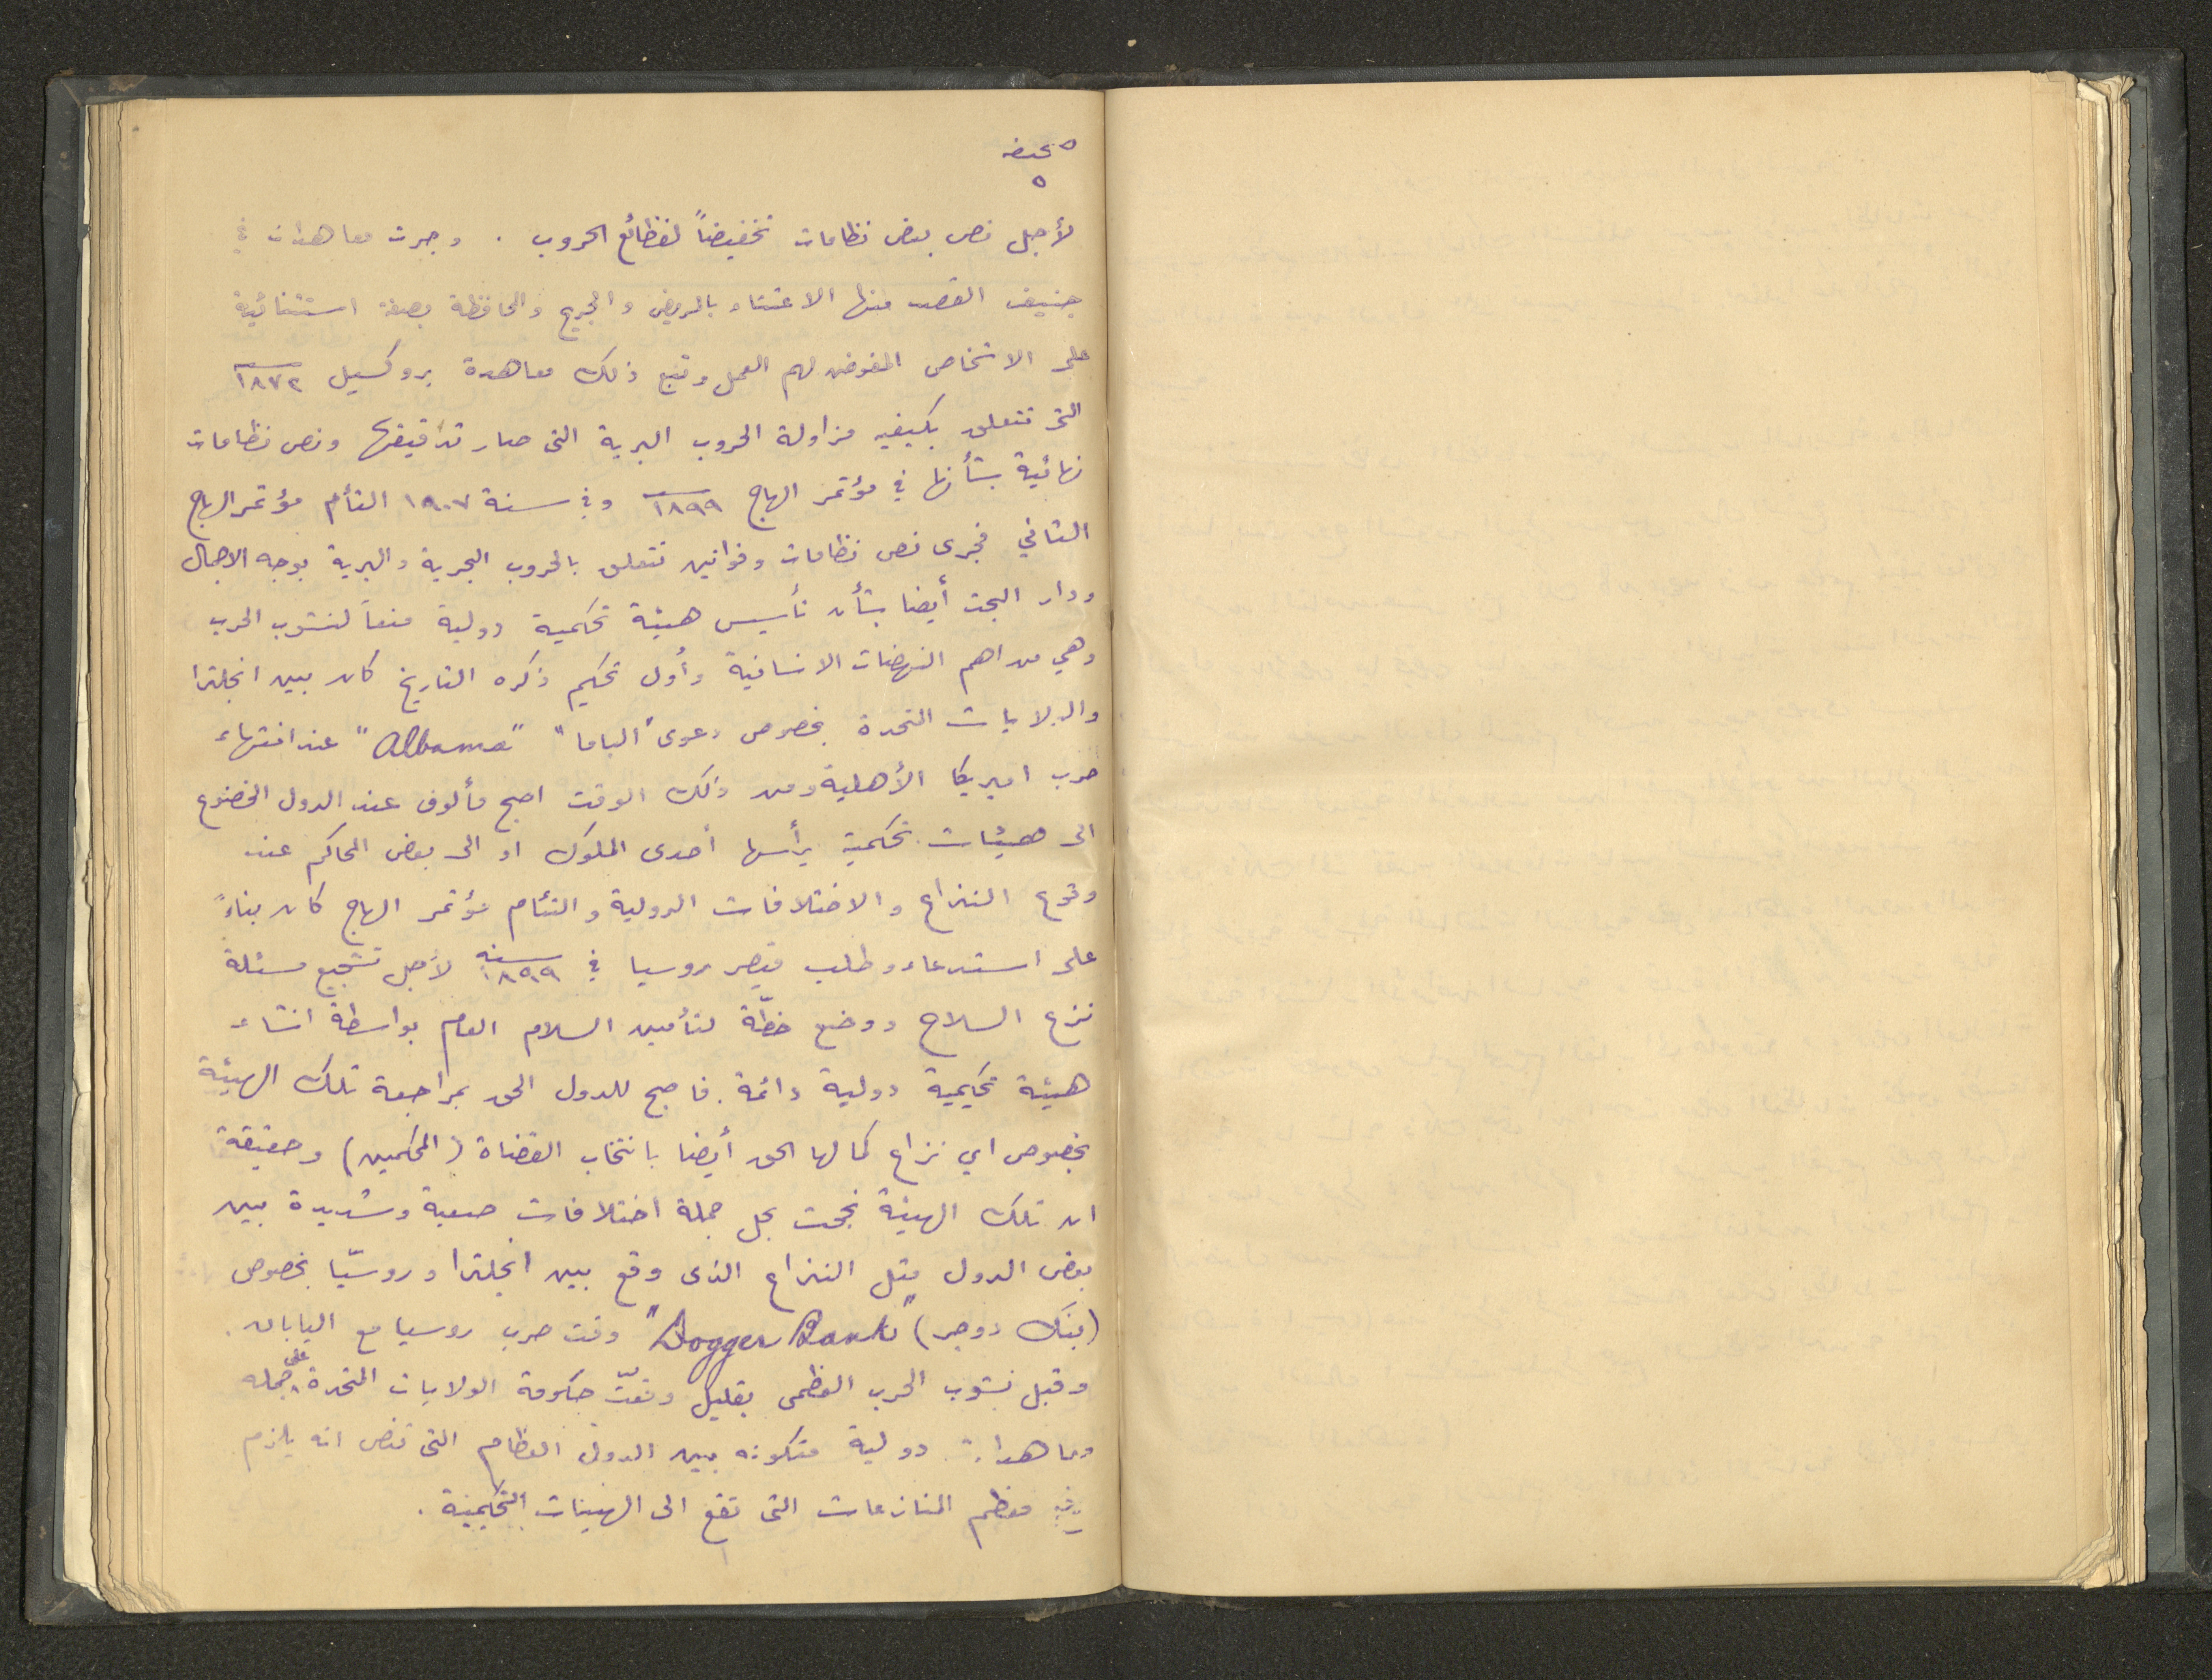 صحيفه
٥
لأجل نص بعض نظامات تخفيضاً لفظائع الحروب . وجرت معاهدات في
جنيف القصد منها الاعتناء بالمريض والجريح والمحافظة بصفة استثنائية
على الاشخاص المفوض لهم العمل وتبع ذلك معاهدة بروكسيل ١٨٧٢
التى تتعلق بكيفيه مزاولة الحروب البرية التى صار تدقيقها ونص نظامات
نهائية بشأنها في مؤتمر الهاج ١٨٩٩ وفي سنة ١٩٠٧ التأم مؤتمر الهاج
الثاني فجرى نص نظامات وقوانين تتعلق بالحروب البحرية والبرية بوجه الاجمال
ودار البحث أيضا بشأن تأسيس هيئة تحكمية دولية منعاً لنشوب الحرب
وهي من اهم النهضات الانسانية وأول تحكيم ذكره التاريخ كان بين انجلترا
والولايات المتحدة بخصوص دعوى "الباما" "Albama" عند انتهاء
حرب اميريكا الأهلية ومن ذلك الوقت اصبح مألوف عند الدول الخضوع
الى هيئات تحكمية يرأسها أحدى الملوك او الى بعض المحاكم عند
وقوع النزاع والاختلافات الدولية والتئام مؤتمر الهاج كان بناءً
على استدعاء وطلب قيصر روسيا في سنة ١٨٩٩ لأجل تشجيع مسئلة
نزع السلاح ووضع خطّة لتأمين السلام العام بواسطة انشاء
هيئة تحكيمية دولية دائمة. فاصبح للدول الحق بمراجعة تلك الهيئة
بخصوص اي نزاع كما لها الحق أيضا بانتخاب القضاة (المحكمين) وحقيقة
ان تلك الهيئة نجحت بحل جملة اختلافات صعبة وشديدة بين
بعض الدول مثل النزاع الذى وقع بين انجلترا وروسيّا بخصوص
(بنك دوجر) "Dogger Bank" وقت حرب روسيا مع اليابان.
وقبل نشوب الحرب العظمى بقليل وقعّت حكومة الولايات المتحدة على جمله
معاهدات دولية متكونه بين الدول العظام التى تنص انه يلزم
معظم المنازعات التى تقع الى الهيئات التحكيمية .